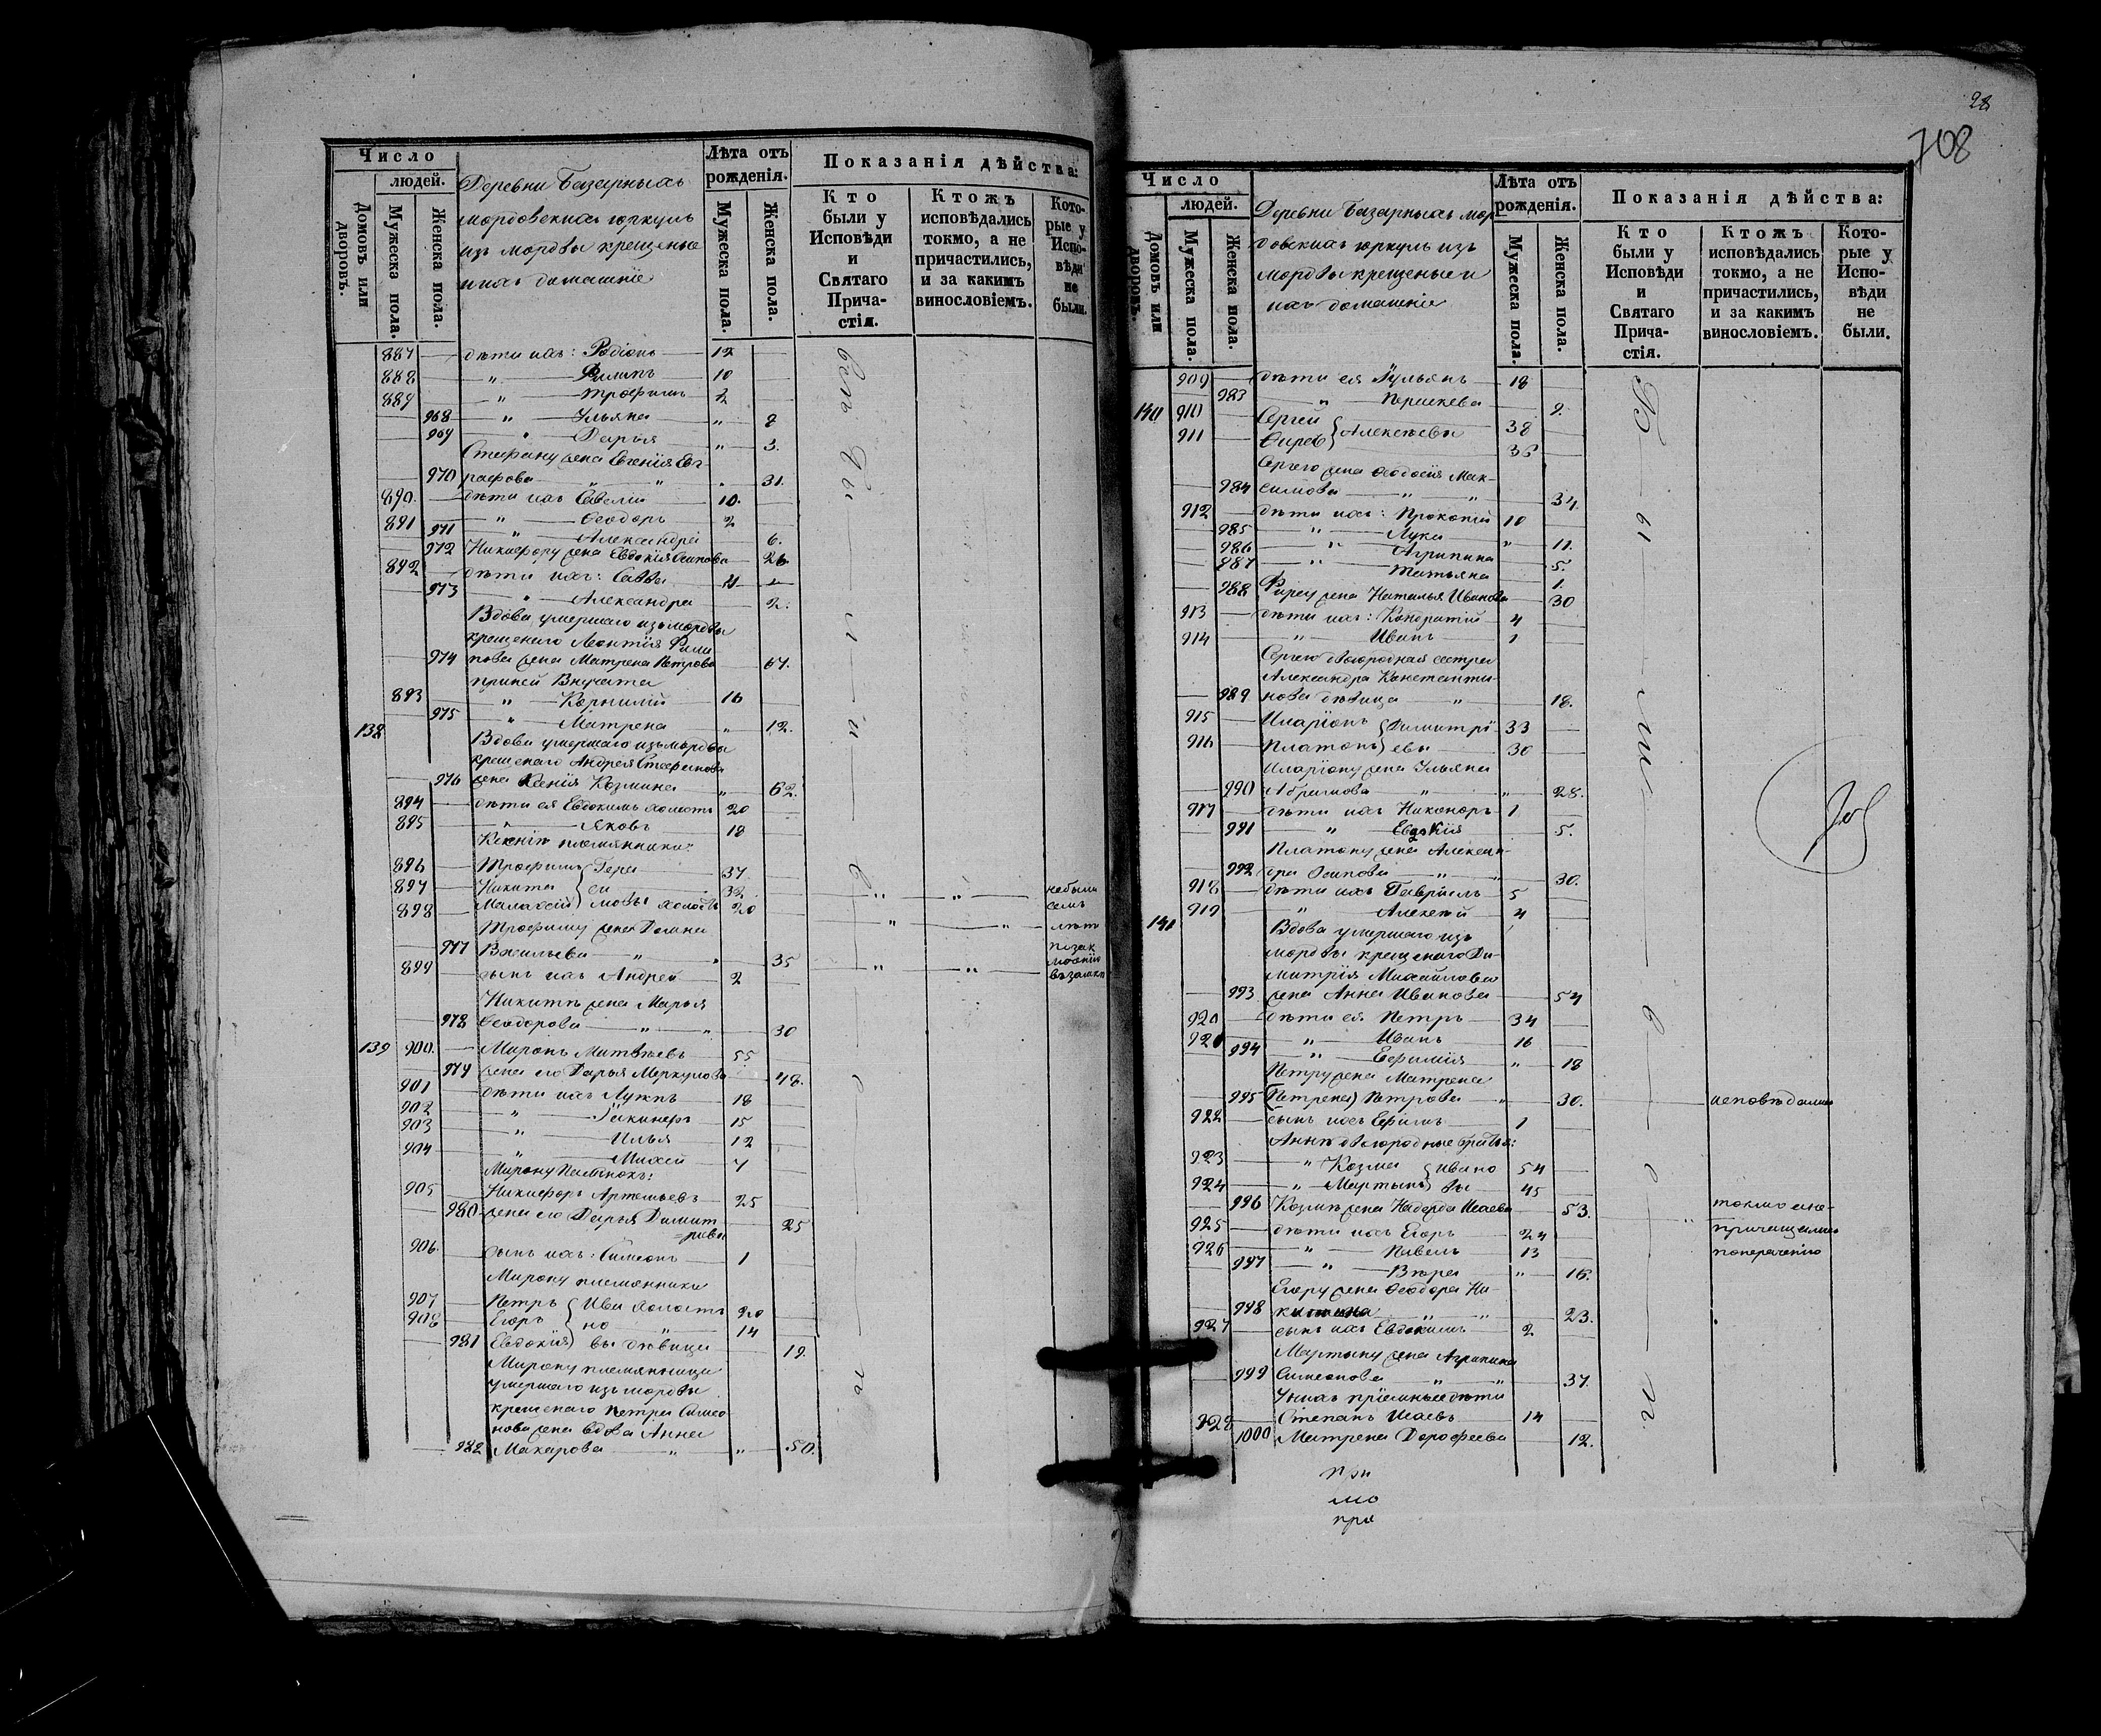 Число
людей.
Домовъ или дворовъ.
Мужеска пола.
Женска пола.
Деревни Базарныхъ
мордовскихъ юркуль
изъ мордвы крещеные
и ихъ домашніе
Лѣта отъ рожденія.
Мужеска пола.
Женска пола.
Показанія дѣйства:
Кто были у Исповѣди и Святаго Прича-стія.
Ктожъ исповѣдались токмо, а не причастились, и за какимъ винословіемъ.
Кото-рые у Испо-вѣди не были.
887 дѣти ихъ: Родіонъ 12
888 " Филипъ 10
889 " Трофимъ 2
968 " Ульяна " 8
969 " Дарья " 3.
Стефану жена Евгенія Евг-
970 рафова " " 31.
890. дѣти ихъ Савелій 10.
891 " Ѳеодоръ 2
971 " Александра 6.
972 Никифору жена Евдокія Осипова 26
892 дѣти ихъ: Савва 4
973 " Александра 2.
Вдова умершаго изъ мордвы
крещенаго Леонтія Фили
974 пова жена Матрена Петрова 67.
при ней Внучата
893 " Корнилій 16
975 " Матрена " 12.
138
Вдова умершаго изъ мордвы
крещенаго Андрея Стефанова
976 жена Ксенія Козмина " 62.
894 дѣти ея Евдокимъ холостъ 20
895 " Яковъ 18
Ксеніи племянники:
896 Трофимъ Гера 37
897 Никита си 32
898 Малахій мовы холостъ 20
не были
семь
лѣтъ
Трофиму жена Домна
977 Васильева " " 35
899 сынъ ихъ Андрей 2
Никитѣ жена Марья
978 Ѳеодорова " " 30
139 900. Миронъ Матвѣевъ 55
979 жена его Дарья Меркулова 48.
901 дѣти ихъ Лукъ 18
902 " 15
903 " Илья 12
904 " Михей 7
Мирону
905 Никифоръ Артемьевъ 25
980 жена его Дарья Димит
=ріева 25
906. сынъ ихъ: Симеонъ 1
Мирону племянники
907 Петръ Ива холостъ 20
908 Егоръ но " 14
981 Евдокія вы дѣвица 19.
Мирону племянница
умершаго изъ мордвы
крещенаго Петра Симео
нова жена вдова Анна
982 Макарова " " 50.
28
708
Число
людей.
Домовъ или дворовъ.
Мужеска пола.
Женска пола.
Деревни Базарныхъ мор
довскихъ юркуль изъ
мордвы крещеные и
ихъ домашніе
Лѣта отъ рожденія.
Мужеска пола.
Женска пола.
Показанія дѣйства:
Кто были у Исповѣди и Святаго Прича-стія.
Ктожъ исповѣдались токмо, а не причастились, и за какимъ винословіемъ.
Кото-рые у Испо-вѣди не были.
909 дѣти ея Гульянъ 18
983 " Параскева 9.
140 910 Сергей 38
911 Алексѣевы 36
Сергею жена Ѳеодосія Мак-
984 симова " " 34.
912 дѣти ихъ: Прокопій 10
985 " Лука " 11.
986 " Агрипина 5.
987 " Татьяна 1.
988 жена Наталья Иванова 30
913 дѣти ихъ: Кондратій 4
914 " Иванъ 1
Сергею двоюродная сестра
Александра Константи-
989 нова дѣвица " 18.
915 Иларіонъ Димитрі 33
916 Платонъ евы 30
Иларіону жена Ульяна
990 Абрамова " " 28.
917 дѣти ихъ Никоноръ 1
991 " Евдокія 5.
Платону жена Алексан-
992 дра Осипова " " 30.
918 дѣти ихъ Гавріилъ 5
919 " Алексѣй 4
141
Вдова умершаго изъ
мордвы крещенаго Ди-
митрія Михайлова
993 жена Анна Иванова 54
920 дѣти ея Петръ 34
921 " Иванъ 16
994 " Евфимія " 18
Петру жена Матрена
995 Петрова " 30. исповѣдались
922 сынъ ихъ Ефимъ 1
Аннѣ двоюродные братья:
923 " Козма Ивано 54
924 " Мартынъ вы 45
996 Козмѣ жена Исаева 53. токмо а не
925 дѣти ихъ Егоръ 24 причащались
926 " Павелъ 13 по нераченію
997 " Вѣра " 16.
Егору жена Ѳеодора Ни-
998 китина " " 23.
927 сынъ ихъ Евдокимъ 2
Мартыну жена Агрипина
999 Симеонова " " 37.
У нихъ пріемные дѣти
928 Степанъ Исаевъ 14
1000 Матрена Дорофеева 12.